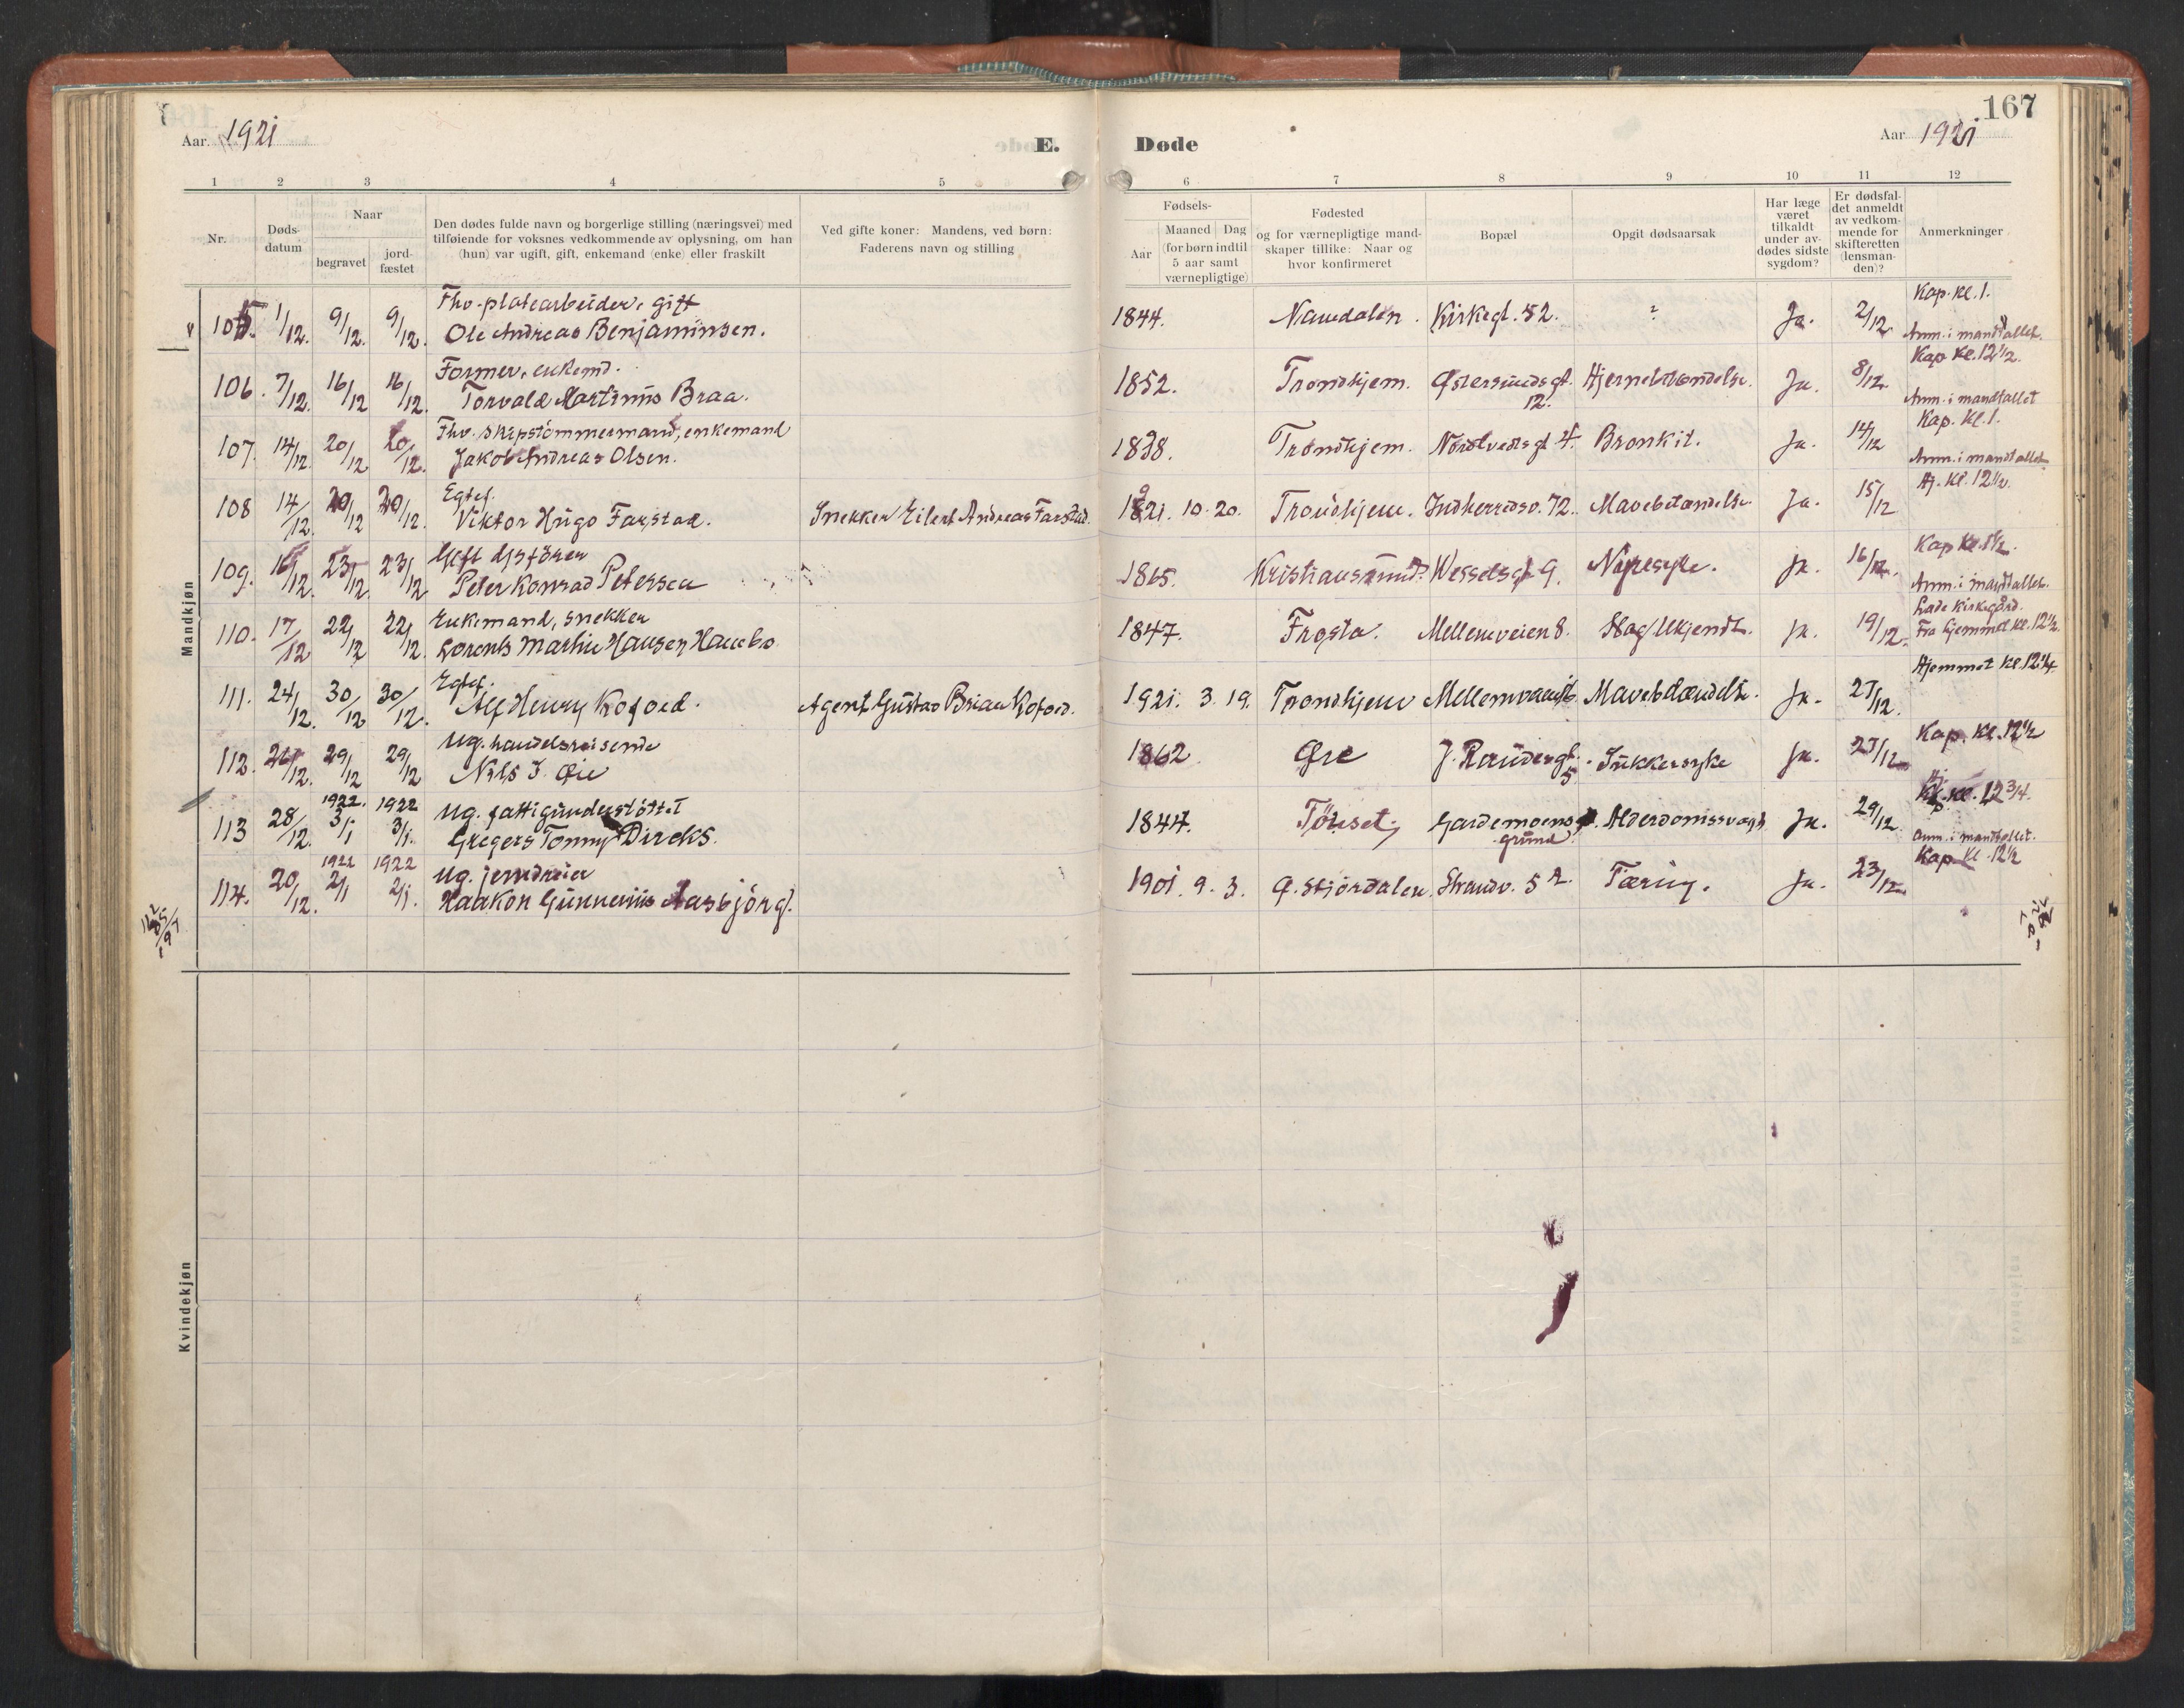 Aar 1921
E.
Døde
167
Aar 1921
1 2 3 4 5 6 7 8 9 10 11 12
Nr.
Døds-
datum
Naar
begravet
jord-
fæstet
Den dødes fulde navn og borgerlige stilling (næringsvei) med
tilføiende for voksnes vedkommende av oplysning, om han
(hun) var ugift, gift, enkemand (enke) eller fraskilt
Ved gifte koner: Mandens, ved børn:
Faderens navn og stilling
Fødsels-
Aar
Maaned Dag
(for børn indtil
5 aar samt
værnepligtige)
Fødested
og for værnepligtige mand-
skaper tillike: Naar og
hvor konfirmeret
Bopæl
Opgit dødsaarsak
Har læge
været
tilkaldt
under av-
dødes sidste
sygdom?
Er dødsfal-
det anmeldt
av vedkom-
mende for
skifteretten
(lensman-
den)?
Anmerkninger
Mandkjøn
Fhv. platearbeider, gift Kap. kl. 1.
105. 1/12. 9/12. 9/12. Ole Andreas Benjaminsen. 1844. Namdalen. Kirkegt. 52. ? Ja. 2/12 Anm. i mandtallet.
Former, enkemd. Kap kl. 12 1/2.
106. 7/12. 16/12 16/12. Torvald Martinus Braa. 1852. Trondhjem. Østersundsgt. 12. Hjernebetændelse. Ja. 8/12 Anm. i mandtallet
Fhv. skipstømmermand, enkemand Kap. kl. 1.
107. 14/12. 20/12 20/12. Jakob Andreas Olsen. 1838. Trondhjem. gt 4. Bronkit. Ja. 14/12 Anm. i mandtallet
Egtef. Hj. kl. 12 1/2.
108 14/12. 20/12 20/12. Viktor Hugo Farstad. Snekker Eilert Andreas Farstad. 1921. 10. 20. Trondhjem. Indherredsv. 72. Mavebetændelse Ja. 15/12
Gift Kap kl.
109. 16/12. 23/12. 23/12 Peter Konrad Petersen 1865. Kristiansund. Wesselsgt 9. Nyresyke. Ja. 16/12. Anm. i mandtallet.
Enkemand, snekker Lade kirkegård.
110. 17/12 22/12 22/12. Lorents Martin Hansen 1847. Frosta. Mellemveien 8. Slag/Ukjendt. Ja. 19/12. Fra hjemmet kl. 12 1/2.
Egtef. Hjemmet kl. 12 1/4.
111. 24/12. 30/12 30/12. Alf Henry Kofoed. Agent Gustav Brian Kofoed. 1921. 3. 19. Trondhjem Mavebetændelse. Ja. 27/12.
Ug. handelsreisende Kap. kl. 12 1/2
112. 26/12. 29/12 29/12 Nils J. Øie 1862 Øre gt. 5. Sukkersyke Ja. 27/12
1922. 1922 Ug. fattigunderstøttet Kl. 12 3/4.
113 28/12. 3/1 3/1. Gregers Tonny Dircks. 1844. Gardemoens grund. Alderdomssvagh. Ja. 29/12 Anm. i mandtallet.
1922 1922 Ug. jerndreier Kap kl. 12 1/2
114. 20/12. 2/1 2/1. Haakon Gunnerius Aasbjørg. 1901. 9. 3. Strandv. Tæring. Ja. 23/12
Kvindekjøn